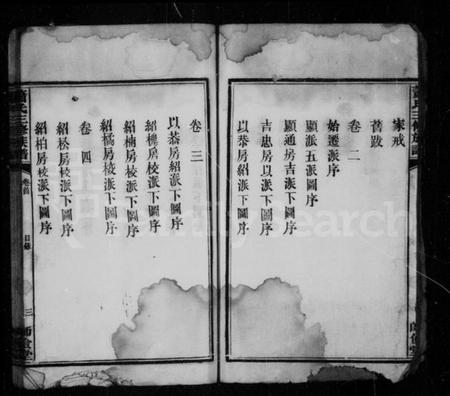 家戒
舊跋
卷二
始遷派序
顯派五派圖序
顯通房吉派下圖序
吉忠房以派下圖序
以恭房紹派下圖序
卷三
以恭房紹派下圖序
紹楒房校派下圖序
紹楠房校派下圖序
紹橋房校派下圖序
卷四
紹松房校派下圖序
紹柏房校派下圖序
三修族譜
卷首
目錄
三
師儉堂
FamilySearch